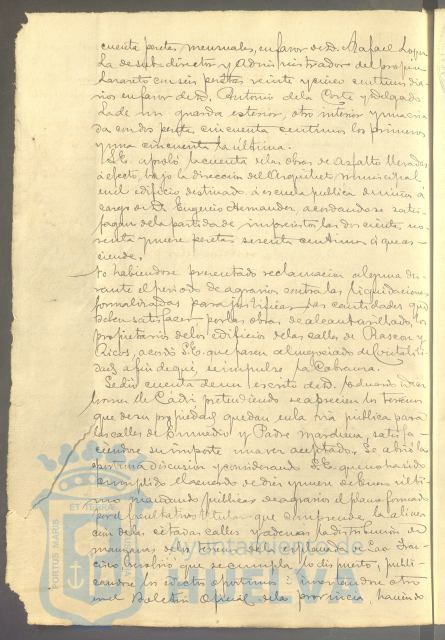 cuenta pesetas mensuales, en favor de D. Rafael López
La de subdirector y administrador del propio
Lazareto con seis pesetas veinte y cinco centimos dia-
rios en favor de D. Antonio de la Corte y Delgado
La de un guarda exterior, otro interior y una cria-
da con dos pesetas cincuenta centimos los primeros
y una cincuenta la ultima.
S.E. aprobó la cuenta de las obras de asfalto llevadas
á efecto, bajo la direccion del Arquitecto municipal
en el edificio destinado á escuela publica de niños á
cargo de D. Eugenio Hernandez, acordandose satis-
fagan de la partida de imprevistos las doscientas no-
venta y nueve pesetas sesenta centimos á que as-
ciende.
No habiendose presentado reclamacion alguna du-
rante el periodo de agravios contra las liquidaciones
formalizadas para justificar las cantidades que
deben satisfacer por las obras de alcantarillado, los
propietarios de los edificios de las calles de Rascon y
Ricos, acordó S.E. que pasen al negociado de Contabili-
dad á fin de que se impulse la Cobranza.
Se dió cuenta de un escrito de D. Eduardo
de Cádiz pretendiendo se aprecien los terrenos
que de su propiedad quedan en la via publica para
las calles de y Padre Marchena, satisfa-
ciendose su importe una vez aceptado. Se abrió la
oportuna discusion y considerando S.E. que no ha sido
cumplido el acuerdo de diez y nueve de Enero ul-
timo mandando publicar de agravios el plano formado
por el facultativo titular que comprende la alinea-
cion de las citadas calles y ademas la distribucion de
manzanas de los terrenos de la explanada de San Fran-
cisco, resolvió que se cumpla lo dispuesto, publi-
candose los edictos oportunos é insertandose otro
en el Boletin Oficial de la provincia; haciendo
PORTUS MARIS ET TERRAE
Ayuntamiento de
HUELVA